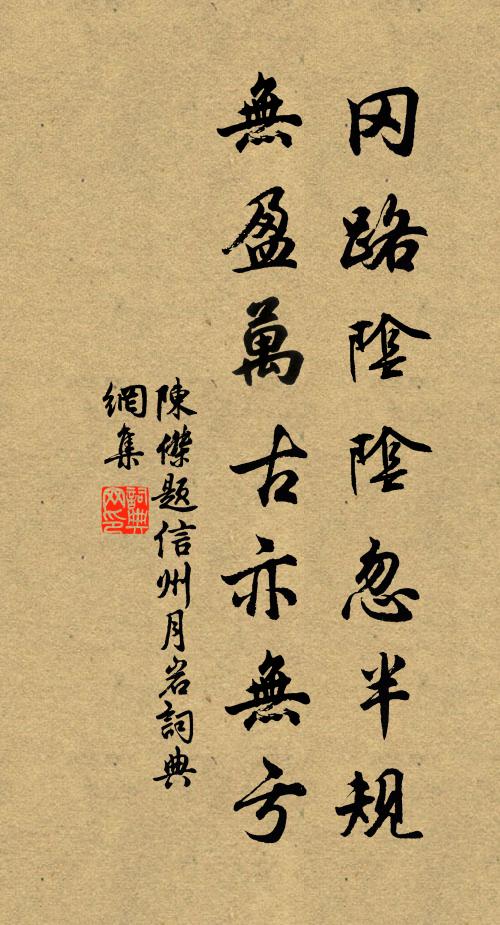 冈路陰陰忽半規
無盈萬古亦無亏
陳傑題信州月岩詞典
網集
詞典网印